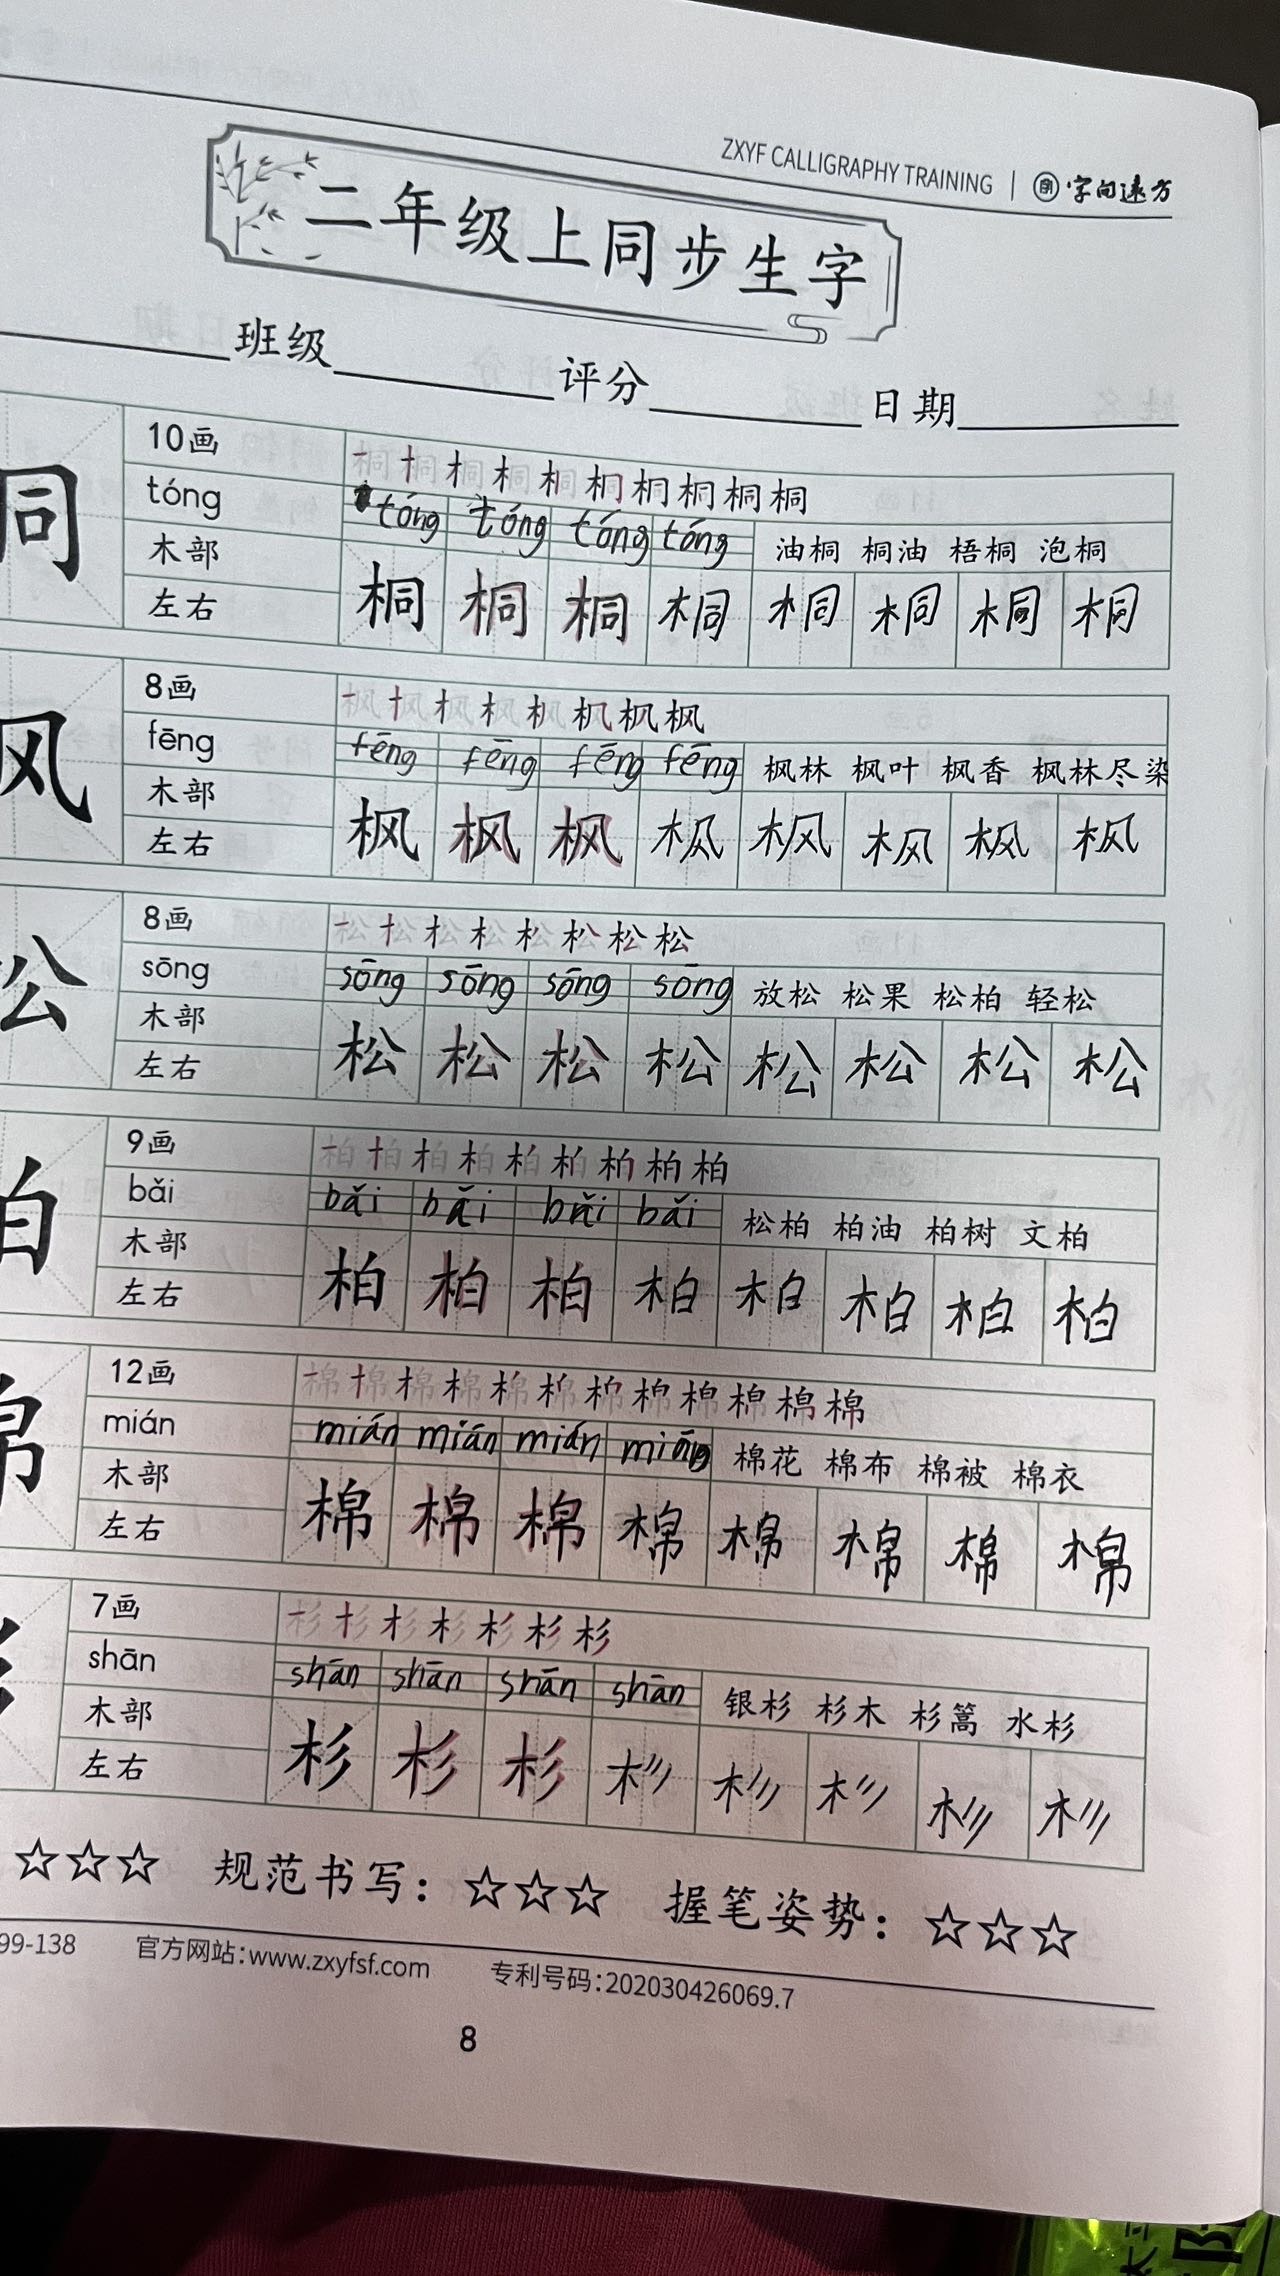 ZXYF CALLIGRAPHY TRAINING | 字向远方
二年级上同步生字
班级 评分 日期
桐
10画
tóng
木部
左右
桐 桐 桐 桐 桐 桐 桐 桐 桐 桐
tóng tóng tóng tóng 油桐 桐油 梧桐 泡桐
桐 桐 桐 桐 桐 桐 桐 桐
枫
8画
fēng
木部
左右
枫 枫 枫 枫 枫 枫 枫 枫
fēng fēng fēng fēng 枫林 枫叶 枫香 枫林尽染
枫 枫 枫 枫 枫 枫 枫 枫
松
8画
sōng
木部
左右
松 松 松 松 松 松 松 松
sōng sōng sōng sōng 放松 松果 松柏 轻松
松 松 松 松 松 松 松 松
柏
9画
bǎi
木部
左右
柏 柏 柏 柏 柏 柏 柏 柏 柏
bǎi bǎi bǎi bǎi 松柏 柏油 柏树 文柏
柏 柏 柏 柏 柏 柏 柏 柏
棉
12画
mián
木部
左右
棉 棉 棉 棉 棉 棉 棉 棉 棉 棉 棉 棉
mián mián mián 棉花 棉布 棉被 棉衣
棉 棉 棉 棉 棉 棉 棉 棉
7画
shān
木部
左右
杉 杉 杉 杉 杉 杉 杉
shān shān shān shān 银杉 杉木 杉篙 水杉
杉 杉 杉 杉 杉 杉 杉 杉
☆☆☆ 规范书写：☆☆☆ 握笔姿势：☆☆☆
99-138 官方网站：www.zxyfsf.com 专利号码：202030426069.7
8